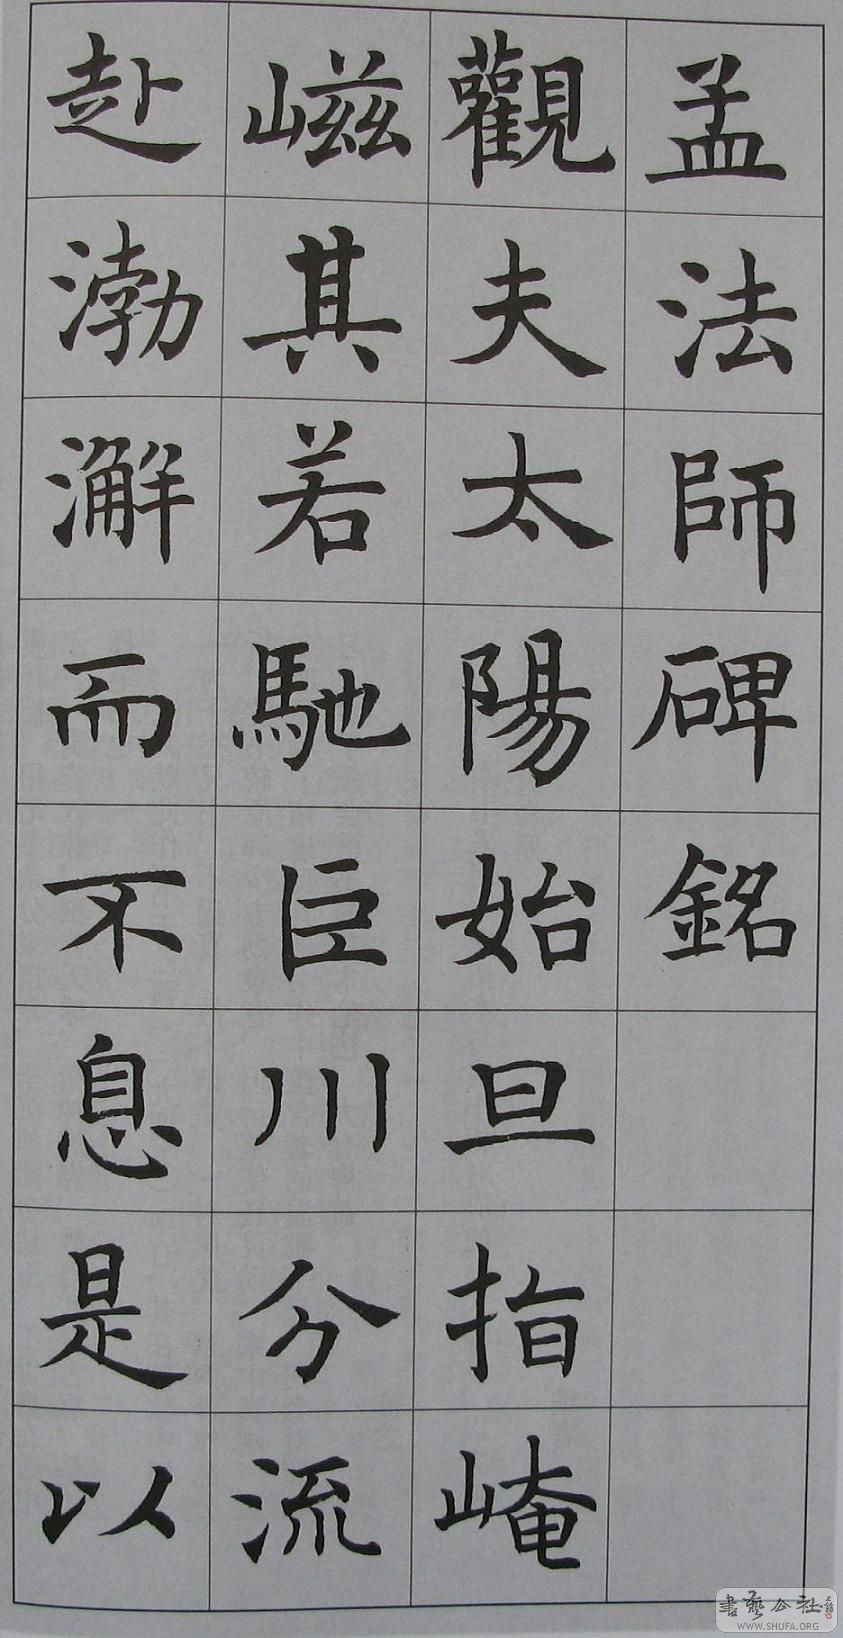 孟法師碑銘
觀夫太陽始旦指崦
嵫其若馳巨川分流
赴渤澥而不息是以
書藝公社
WWW.SHUFA.ORG